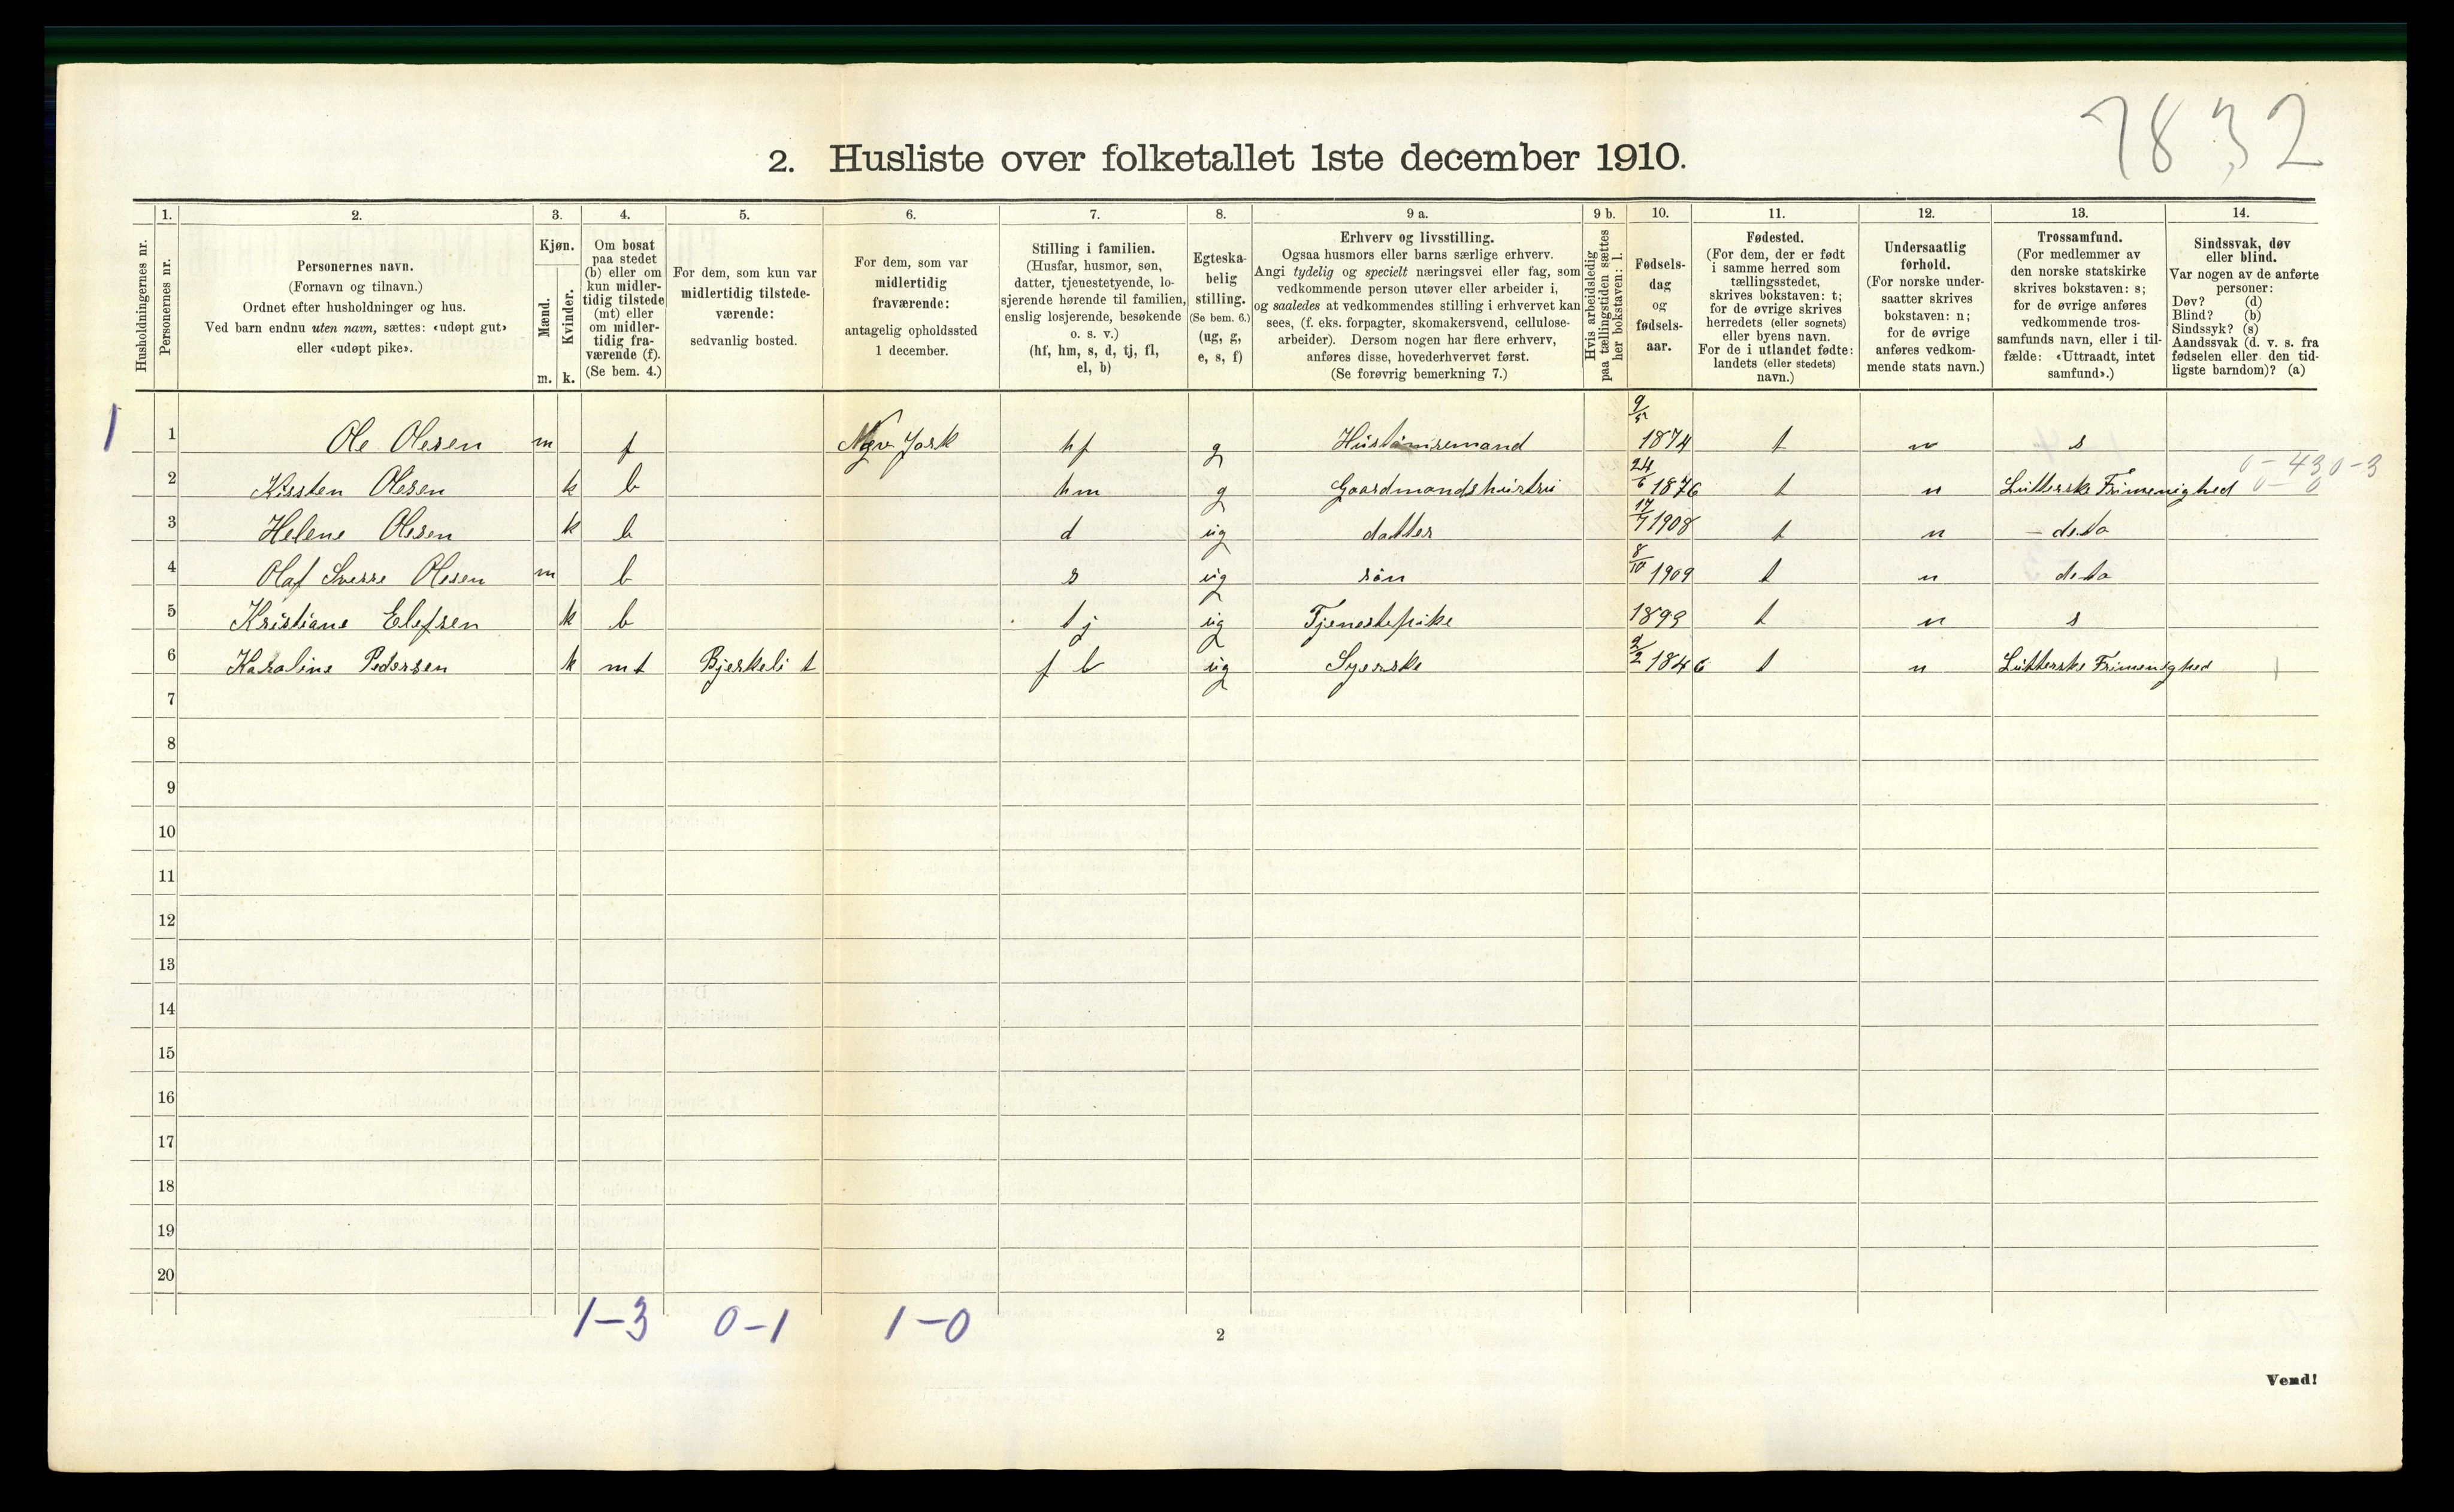 7832
2. Husliste over folketallet 1ste december 1910.
Husholdningernes nr.
1.
Personernes nr.
2.
Personernes navn.
(Fornavn og tilnavn.)
Ordnet efter husholdninger og hus.
Ved barn endnu uten navn, sættes: «udøpt gut»
eller «udøpt pike».
3.
Kjøn.
Mænd.
Kvinder.
m. k.
4.
Om bosat
paa stedet
(b) eller om
kun midler-
tidig tilstede
(mt) eller
om midler-
tidig fra-
værende (f).
(Se bem. 4.)
5.
For dem, som kun var
midlertidig tilstede-
værende:
sedvanlig bosted.
6.
For dem, som var
midlertidig
fraværende:
antagelig opholdssted
1 december.
7.
Stilling i familien.
(Husfar, husmor, søn,
datter, tjenestetyende, lo-
sjerende hørende til familien,
enslig losjerende, besøkende
o. s. v.)
(hf, hm, s, d, tj, fl,
el, b)
8.
Egteska-
belig
stilling.
(Se bem. 6.)
(ug, g,
e, s, f)
9 a.
Erhverv og livsstilling.
Ogsaa husmors eller barns særlige erhverv.
Angi tydelig og specielt næringsvei eller fag, som
vedkommende person utøver eller arbeider i,
og saaledes at vedkommendes stilling i erhvervet kan
sees, (f. eks. forpagter, skomakersvend, cellulose-
arbeider). Dersom nogen har flere erhverv,
anføres disse, hovederhvervet først.
(Se forøvrig bemerkning 7.)
9 b.
Hvis arbeidsledig
paa tællingstiden sættes
her bokstaven: l.
10.
Fødsels-
dag
og
fødsels-
aar.
11.
Fødested.
(For dem, der er født
i samme herred som
tællingsstedet,
skrives bokstaven: t;
for de øvrige skrives
herredets (eller sognets)
eller byens navn.
For de i utlandet fødte:
landets (eller stedets)
navn.)
12.
Undersaatlig
forhold.
(For norske under-
saatter skrives
bokstaven: n;
for de øvrige
anføres vedkom-
mende stats navn.)
13.
Trossamfund.
(For medlemmer av
den norske statskirke
skrives bokstaven: s;
for de øvrige anføres
vedkommende tros-
samfunds navn, eller i til-
fælde: «Uttraadt, intet
samfund».)
14.
Sindssvak, døv
eller blind.
Var nogen av de anførte
personer:
Døv? (d)
Blind? (b)
Sindssyk? (s)
Aandssvak (d. v. s. fra
fødselen eller den tid-
ligste barndom)? (a)
1 1 Ole Olesen m f York hf g 1874 t n s
2 Kirsten Olesen k b hm g Gaardmandshustru 24/6 1876 t n Lutterske Frimenighed
3 Helene Olesen k b d ug datter 17/7 1908 t n - deto
4 Olaf Sverre Olesen m b s ug søn 8/10 1909 t n deto
5 Kristiane Elefsen k b tj ug Tjenestepike 1893 t n s
6 Karaline Pedersen k mt Bjerkeli t f b ug Syerske 2/2 1846 t n Lutterske Frimenighed
7
8
9
10
11
12
13
14
15
16
17
18
19
20
1-3 0-1 1-0
2
Vend!